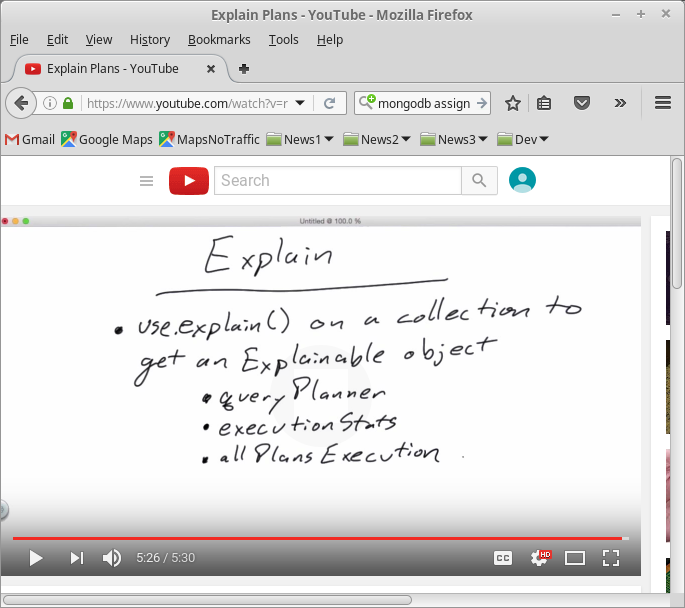 Explain Plans - YouTube - Mozilla Firefox
File Edit View History Bookmarks Tools Help
Explain Plans - YouTube
https://www.youtube.com/watch?v=r
mongodb assign
Gmail Google Maps MapsNoTraffic News1 News2 News3 Dev
Search
Untitled @ 100.0 %
Explain
• use.explain() on a collection to
get an Explainable object
• queryPlanner
• executionStats
• allPlansExecution
5:26 / 5:30
CC HD